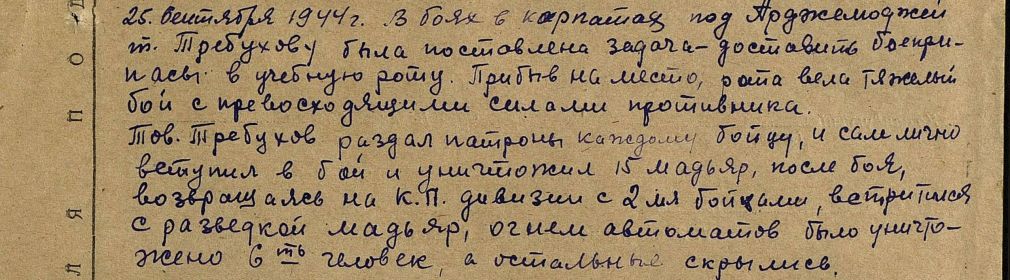 25. Сентября 1944 г. В боях в карпатах под Арджемоджей
т. Требухову была поставлена задача – доставить боепри-
пасы в учебную роту. Прибыв на место, рота вела тяжелый
бой с превосходящими силами противника.
Тов. Требухов раздал патроны каждому бойцу, и сам лично
вступил в бой и уничтожил 15 мадьяр, после боя,
возвращаясь на К.П. дивизии с 2мя бойцами, встритился
с разведкой мадьяр, огнем автоматов было уничто-
жено 6ть человек, а остальные скрылись.
Л Я П О